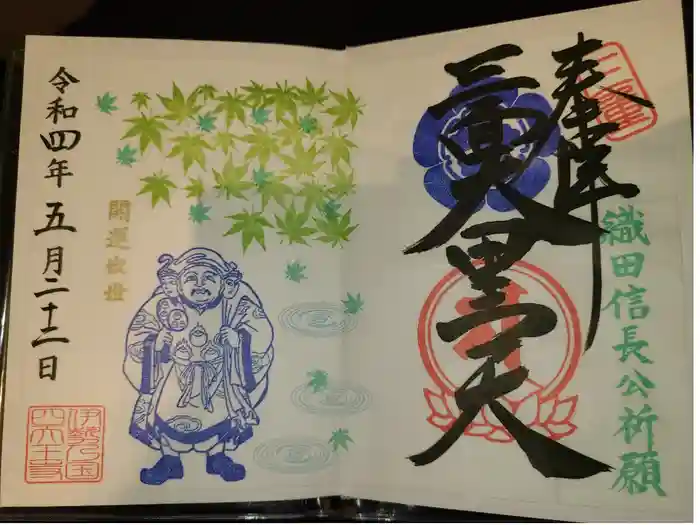 三重
奉拝
織田信長公祈願
三面大黒天
開運
令和四年五月二十二日
伊勢乃国
四天王寺